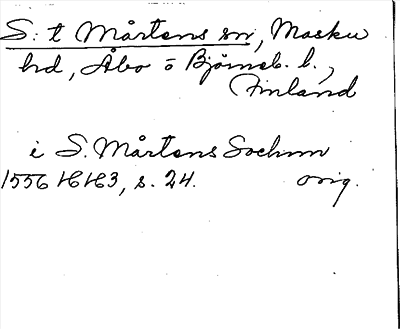 S:t Mårtens sn, Masku
hd, Åbo o Björneb. l.,
Finland
i S. Mårtens Socknn
1556 16163, s. 24. orig.